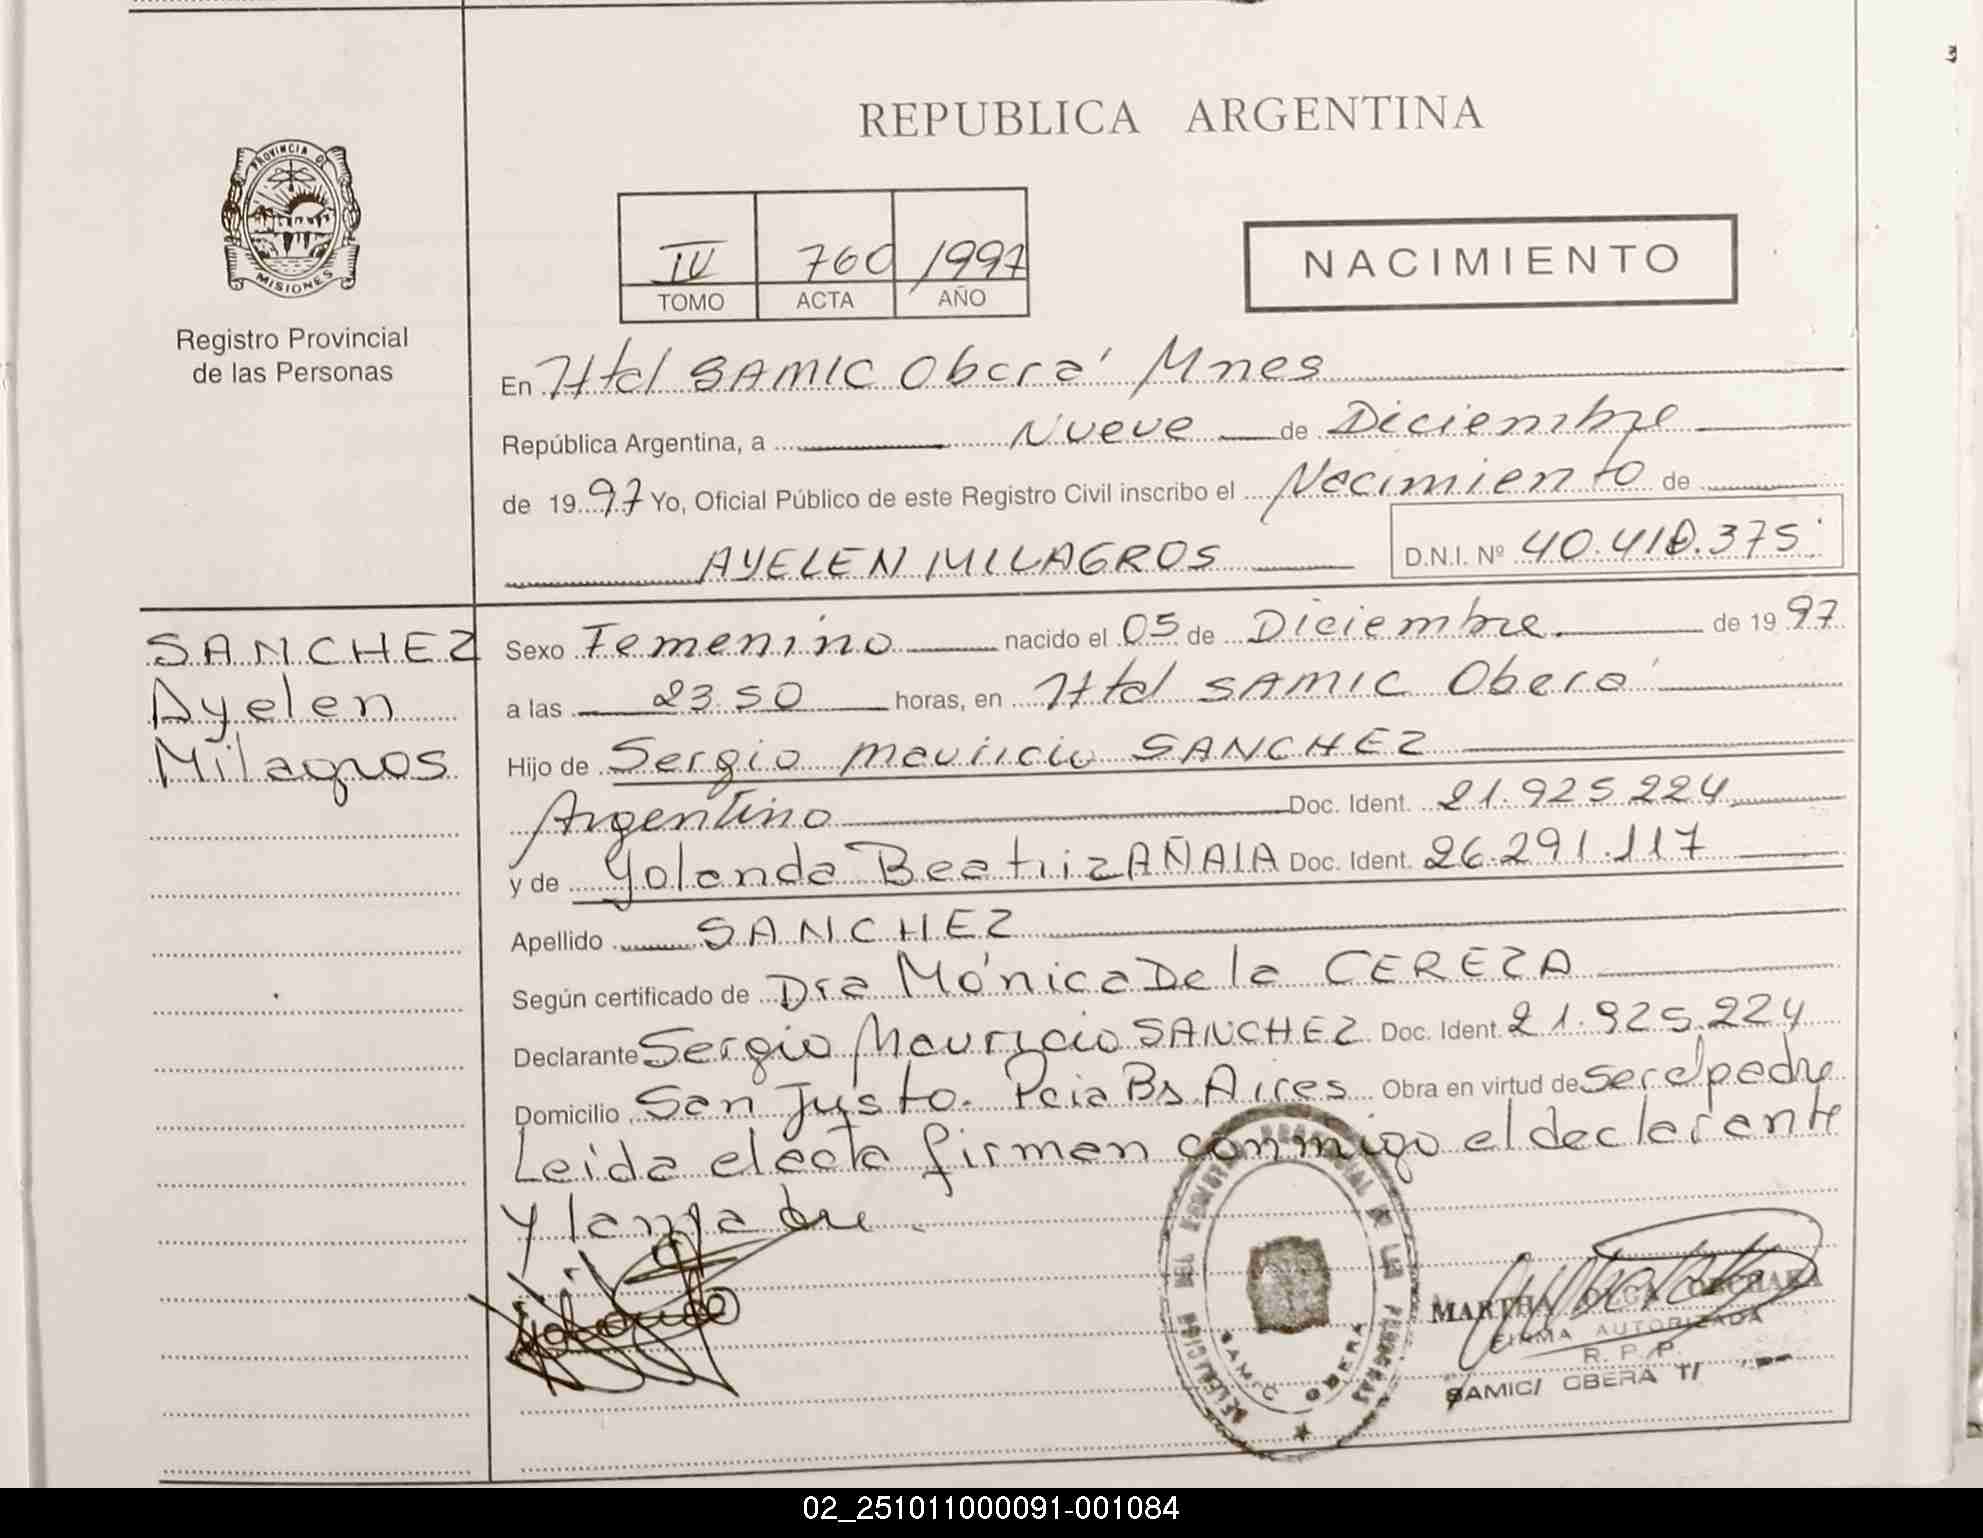 REPUBLICA ARGENTINA
PROVINCIA DE
MISIONES
Registro Provincial
de las Personas
IV 760 1997
TOMO ACTA AÑO
NACIMIENTO
En Htal SAMIC Oberá Mnes
República Argentina, a Nueve de Diciembre
de 1997 Yo, Oficial Público de este Registro Civil inscribo el Nacimiento de
AYELEN MILAGROS D.N.I. Nº 40.410.375
SANCHEZ
Ayelen
Milagros
Sexo Femenino nacido el 05 de Diciembre de 1997
a las 23.50 horas, en Htal SAMIC Oberá
Hijo de Sergio Mauricio SANCHEZ
Argentino Doc. Ident. 21.925.224
y de Yolanda Beatriz AÑAIA Doc. Ident. 26.291.117
Apellido SANCHEZ
Según certificado de Dra Mónica De la CEREZA
Declarante Sergio Mauricio SANCHEZ Doc. Ident. 21.925.224
Domicilio San Justo. Pcia Bs Aires Obra en virtud de ser el padre
Leida el acta firman conmigo el declarante
y la madre
DELEGACION DEL REGISTRO PROVINCIAL DE LAS PERSONAS
SAMIC OBERA
MARTHA
FIRMA AUTORIZADA
R. P. P.
SAMIC/ OBERA
02_251011000091-001084